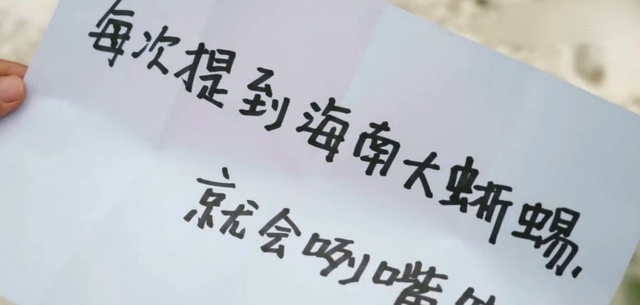 每次提到海南大蜥蜴.
就会咧嘴